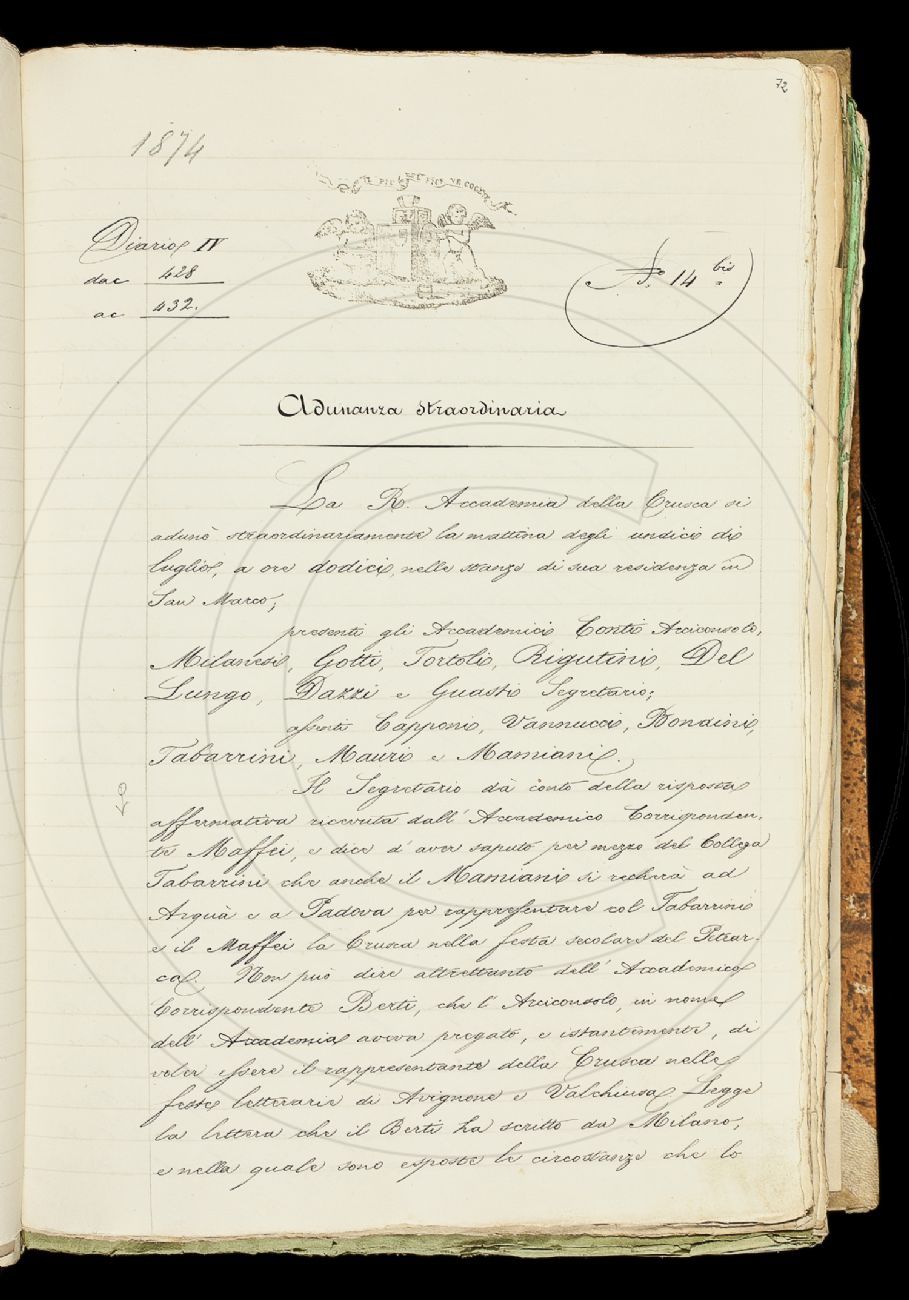 72
1874
Diario IV
da c 428
a c 432.
N.° 14 bis
Adunanza straordinaria
La R. Accademia della Crusca si
adunò straordinariamente la mattina degli undici di
luglio, a ore dodici, nelle stanze di sua residenza in
San Marco;
presenti gli Accademici Conti Arciconsolo,
Milanesi, Gotti, Tortoli, Rigutini, Del
Lungo, Dazzi e Guasti Segretario;
assenti Capponi, Vannucci, Bonaini,
Tabarrini, Mauri e Mamiani.
Il Segretario dà conto della risposta
affermativa ricevuta dall' Accademico Corrisponden-
te Maffei, e dice d' aver saputo per mezzo del Collega
Tabarrini che anche il Mamiani si recherà ad
Arquà e a Padova per rappresentare col Tabarrini
e il Maffei la Crusca nella festa secolare del Petrar-
ca. Non può dire altrettanto dell' Accademico
Corrispondente Berti, che l' Arciconsolo, in nome
dell' Accademia aveva pregato, e istantemente, di
voler essere il rappresentante della Crusca nelle
feste letterarie di Avignone e Valchiusa. Legge
la lettera che il Berti ha scritto da Milano,
e nella quale sono esposte le circostanze che lo